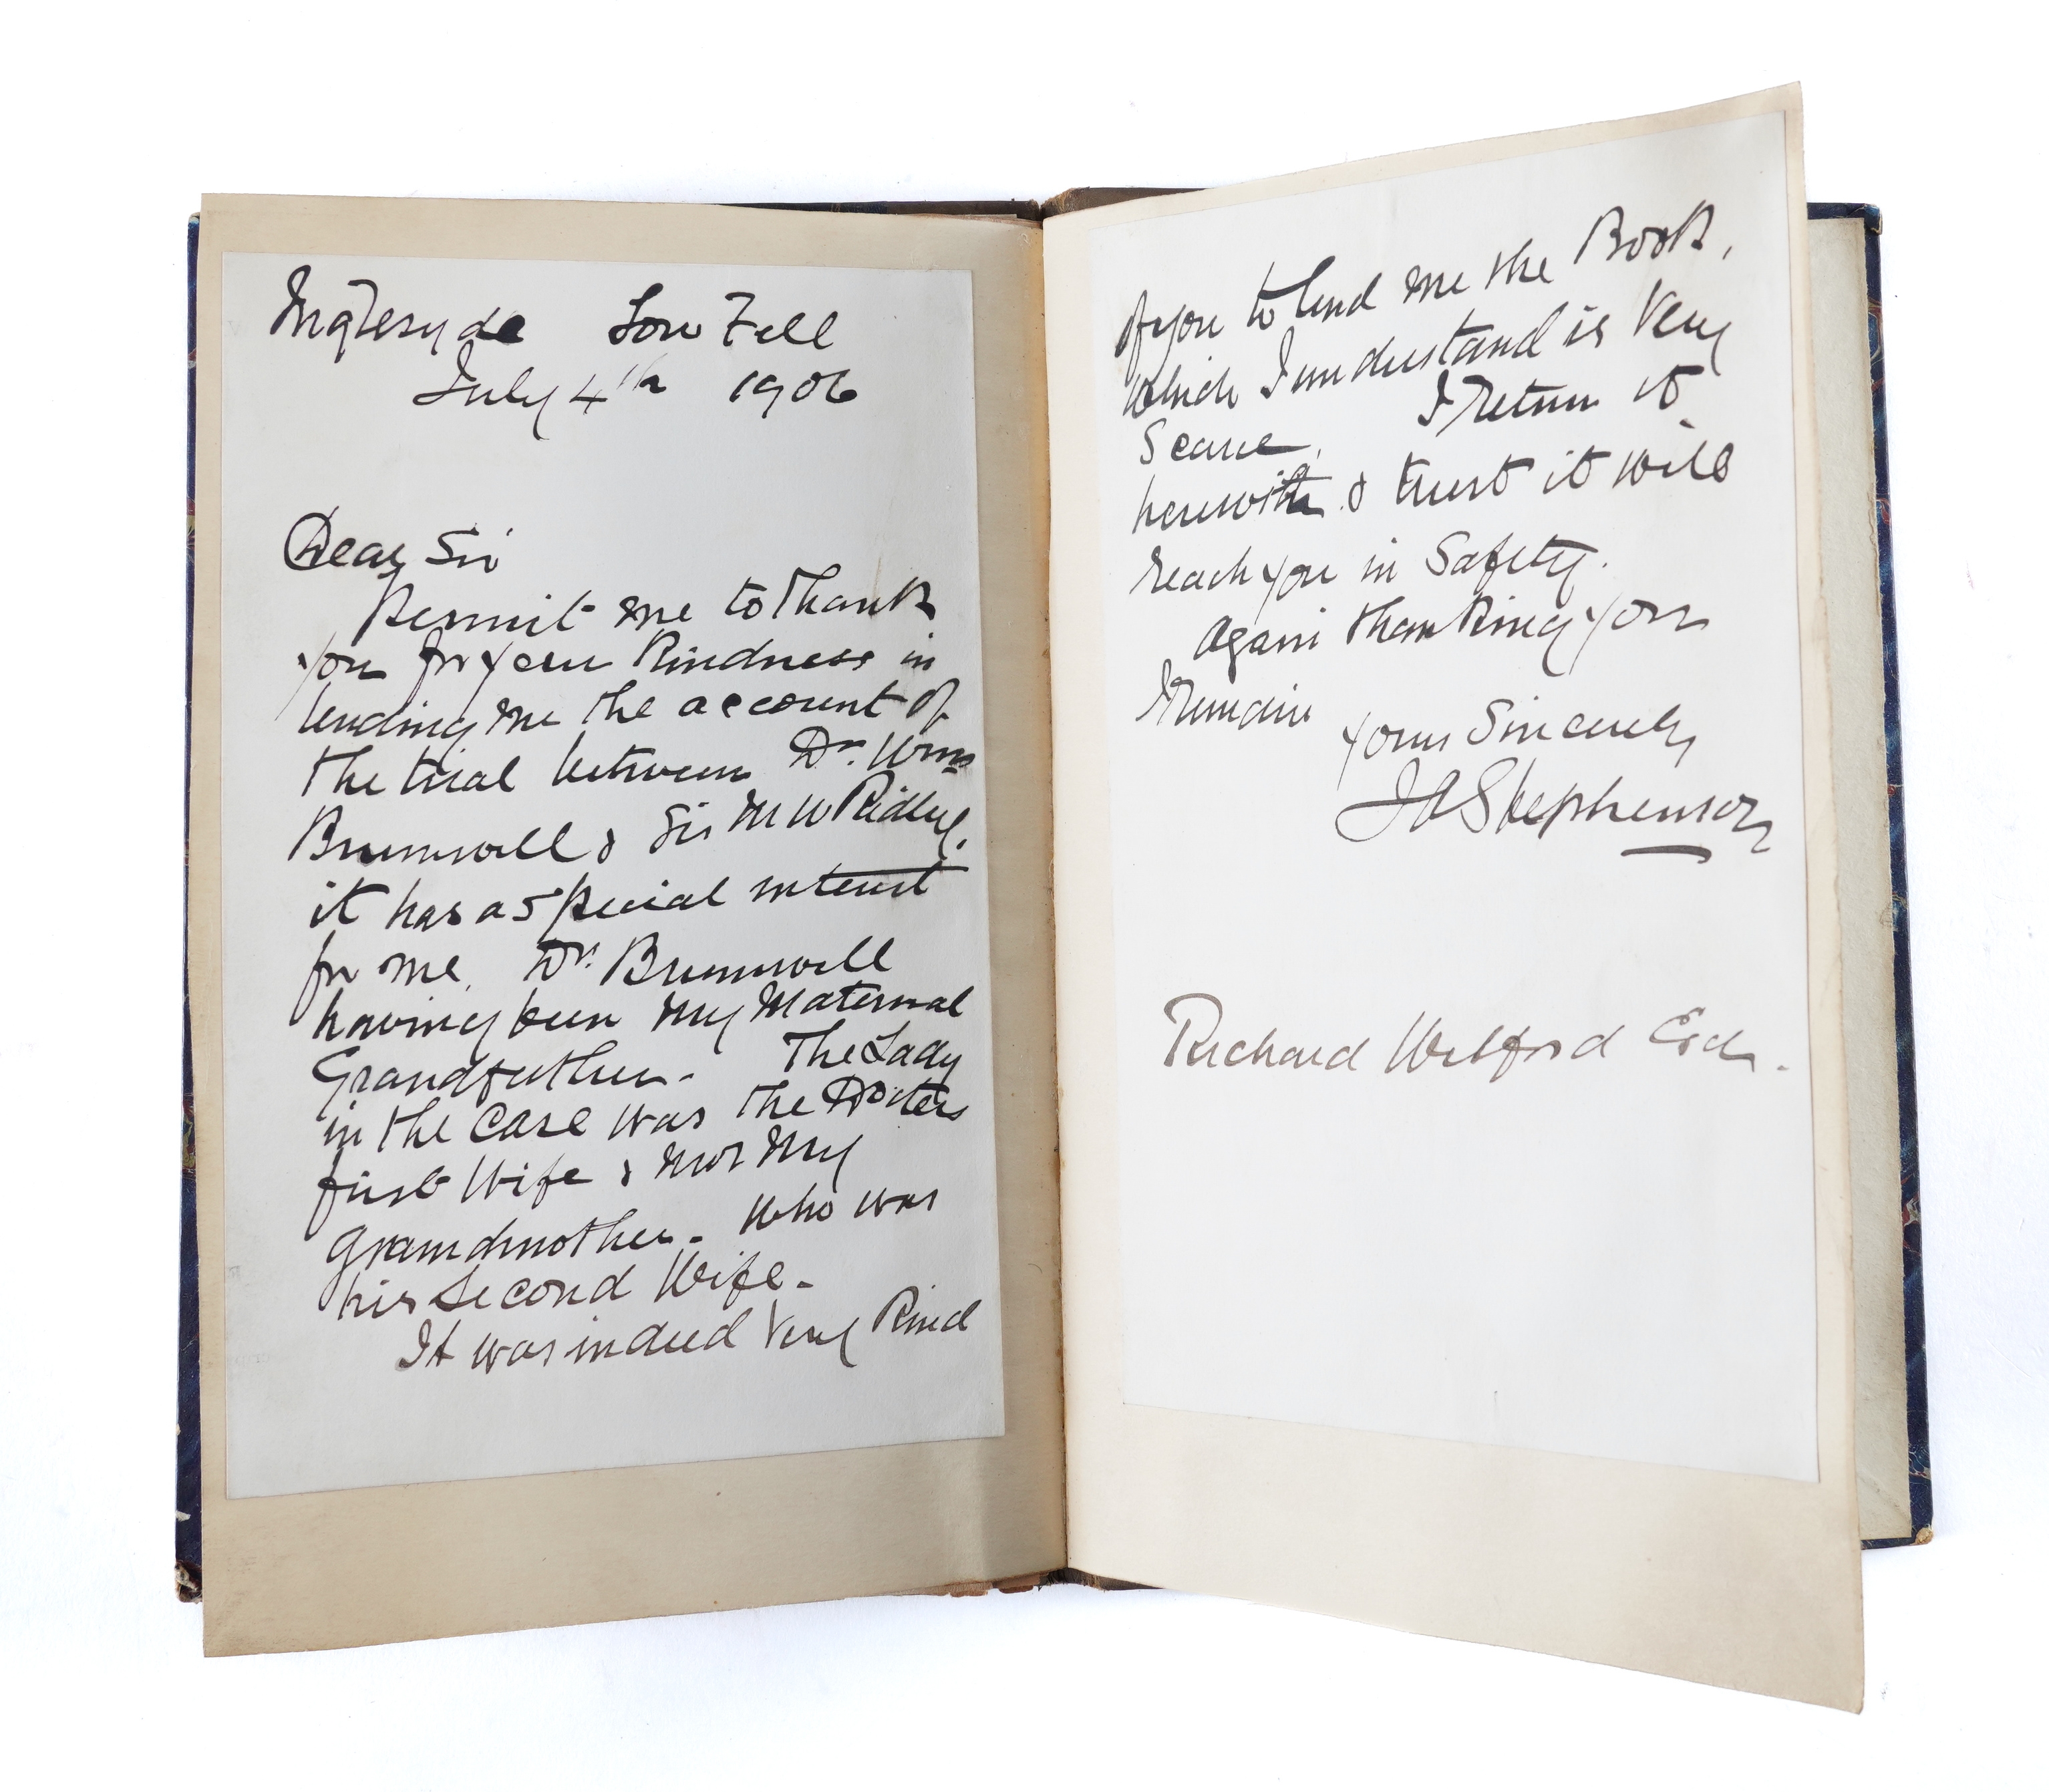 Ingleside Low Fell
July 4th 1906
Dear Sir
Permit me to thank
you for your kindness in
lending me the account of
the trial between Dr. Wm
Brumwell & Sir M W Ridley.
it has a special interest
for me. Dr. Brumwell
having been my Maternal
Grandfather - The Lady
in the case was the Doctors
first Wife & not My
grandmother - who was
his second Wife -
It was indeed very kind
of you to lend me the Book,
which I understand is very
scarce. I return it
herewith & trust it will
reach you in safety.
Again thanking you
I remain
Yours Sincerely
J A Stephenson
Richard Welford Esq.